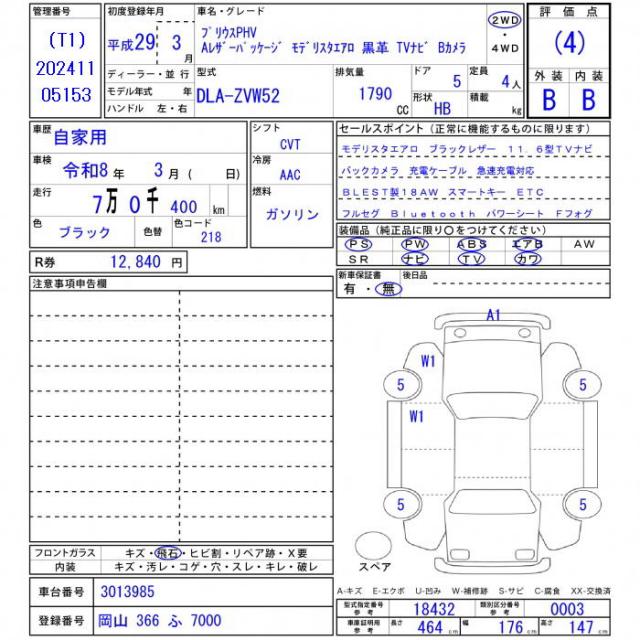 管理番号
(T1)
202411
05153
初度登録年月
平成29年 3月
ディーラー・並行
モデル年式 年
ハンドル 左・右
車名・グレード
プリウスPHV
Aレザーパッケージ モデリスタエアロ 黒革 TVナビ Bカメラ
2WD
・
4WD
型式
DLA-ZVW52
排気量
1790 CC
ドア 5
形状 HB
定員 4人
積載 kg
評価点
(4)
外装 内装
B B
車歴
自家用
車検
令和8年 3月 ( 日)
走行
7万 0千 400 km
色
ブラック
色替
色コード
218
シフト
CVT
冷房
AAC
燃料
ガソリン
R券 12,840 円
セールスポイント (正常に機能するものに限ります)
モデリスタエアロ ブラックレザー 11.6型TVナビ
バックカメラ 充電ケーブル 急速充電対応
BLEST製18AW スマートキー ETC
フルセグ Bluetooth パワーシート Fフォグ
装備品 (純正品に限り○をつけてください)
PS PW ABS エアB AW
SR ナビ TV カワ
新車保証書
有・無
後日品
注意事項申告欄
A1
W1
5
5
W1
5
5
スペア
フロントガラス キズ・飛石・ヒビ割・リペア跡・X要
内装 キズ・汚レ・コゲ・穴・スレ・キレ・破レ
車台番号 3013985
登録番号 岡山 366 ふ 7000
A-キズ E-エクボ U-凹み W-補修跡 S-サビ C-腐食 XX-交換済
型式指定番号 参考 18432 類別区分番号 参考 0003
車庫証明用 参考 長さ 464 cm 幅 176 cm 高さ 147 cm